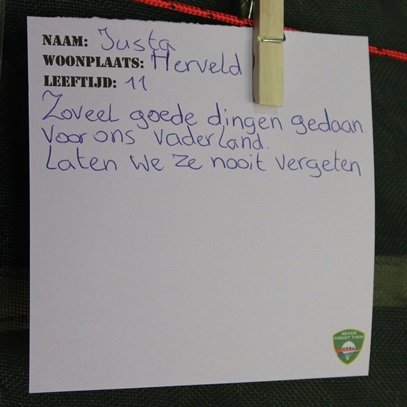 NAAM: Justa
WOONPLAATS: Herveld
LEEFTIJD: 11
Zoveel goede dingen gedaan
voor ons vaderland.
Laten we ze nooit vergeten
NEVER
FORGET THEM